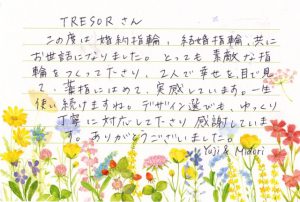 TRESORさん
この度は婚約指輪、結婚指輪、共に
お世話になりました。とっても素敵な指
輪をつくって下さり、2人で幸せを、目で見
て、薬指にはめて、実感しています。一生
使い続けますね。デザイン選びも、ゆっくり
丁寧に対応して下さり感謝していま
す。ありがとうございました。
Yuji & Midori